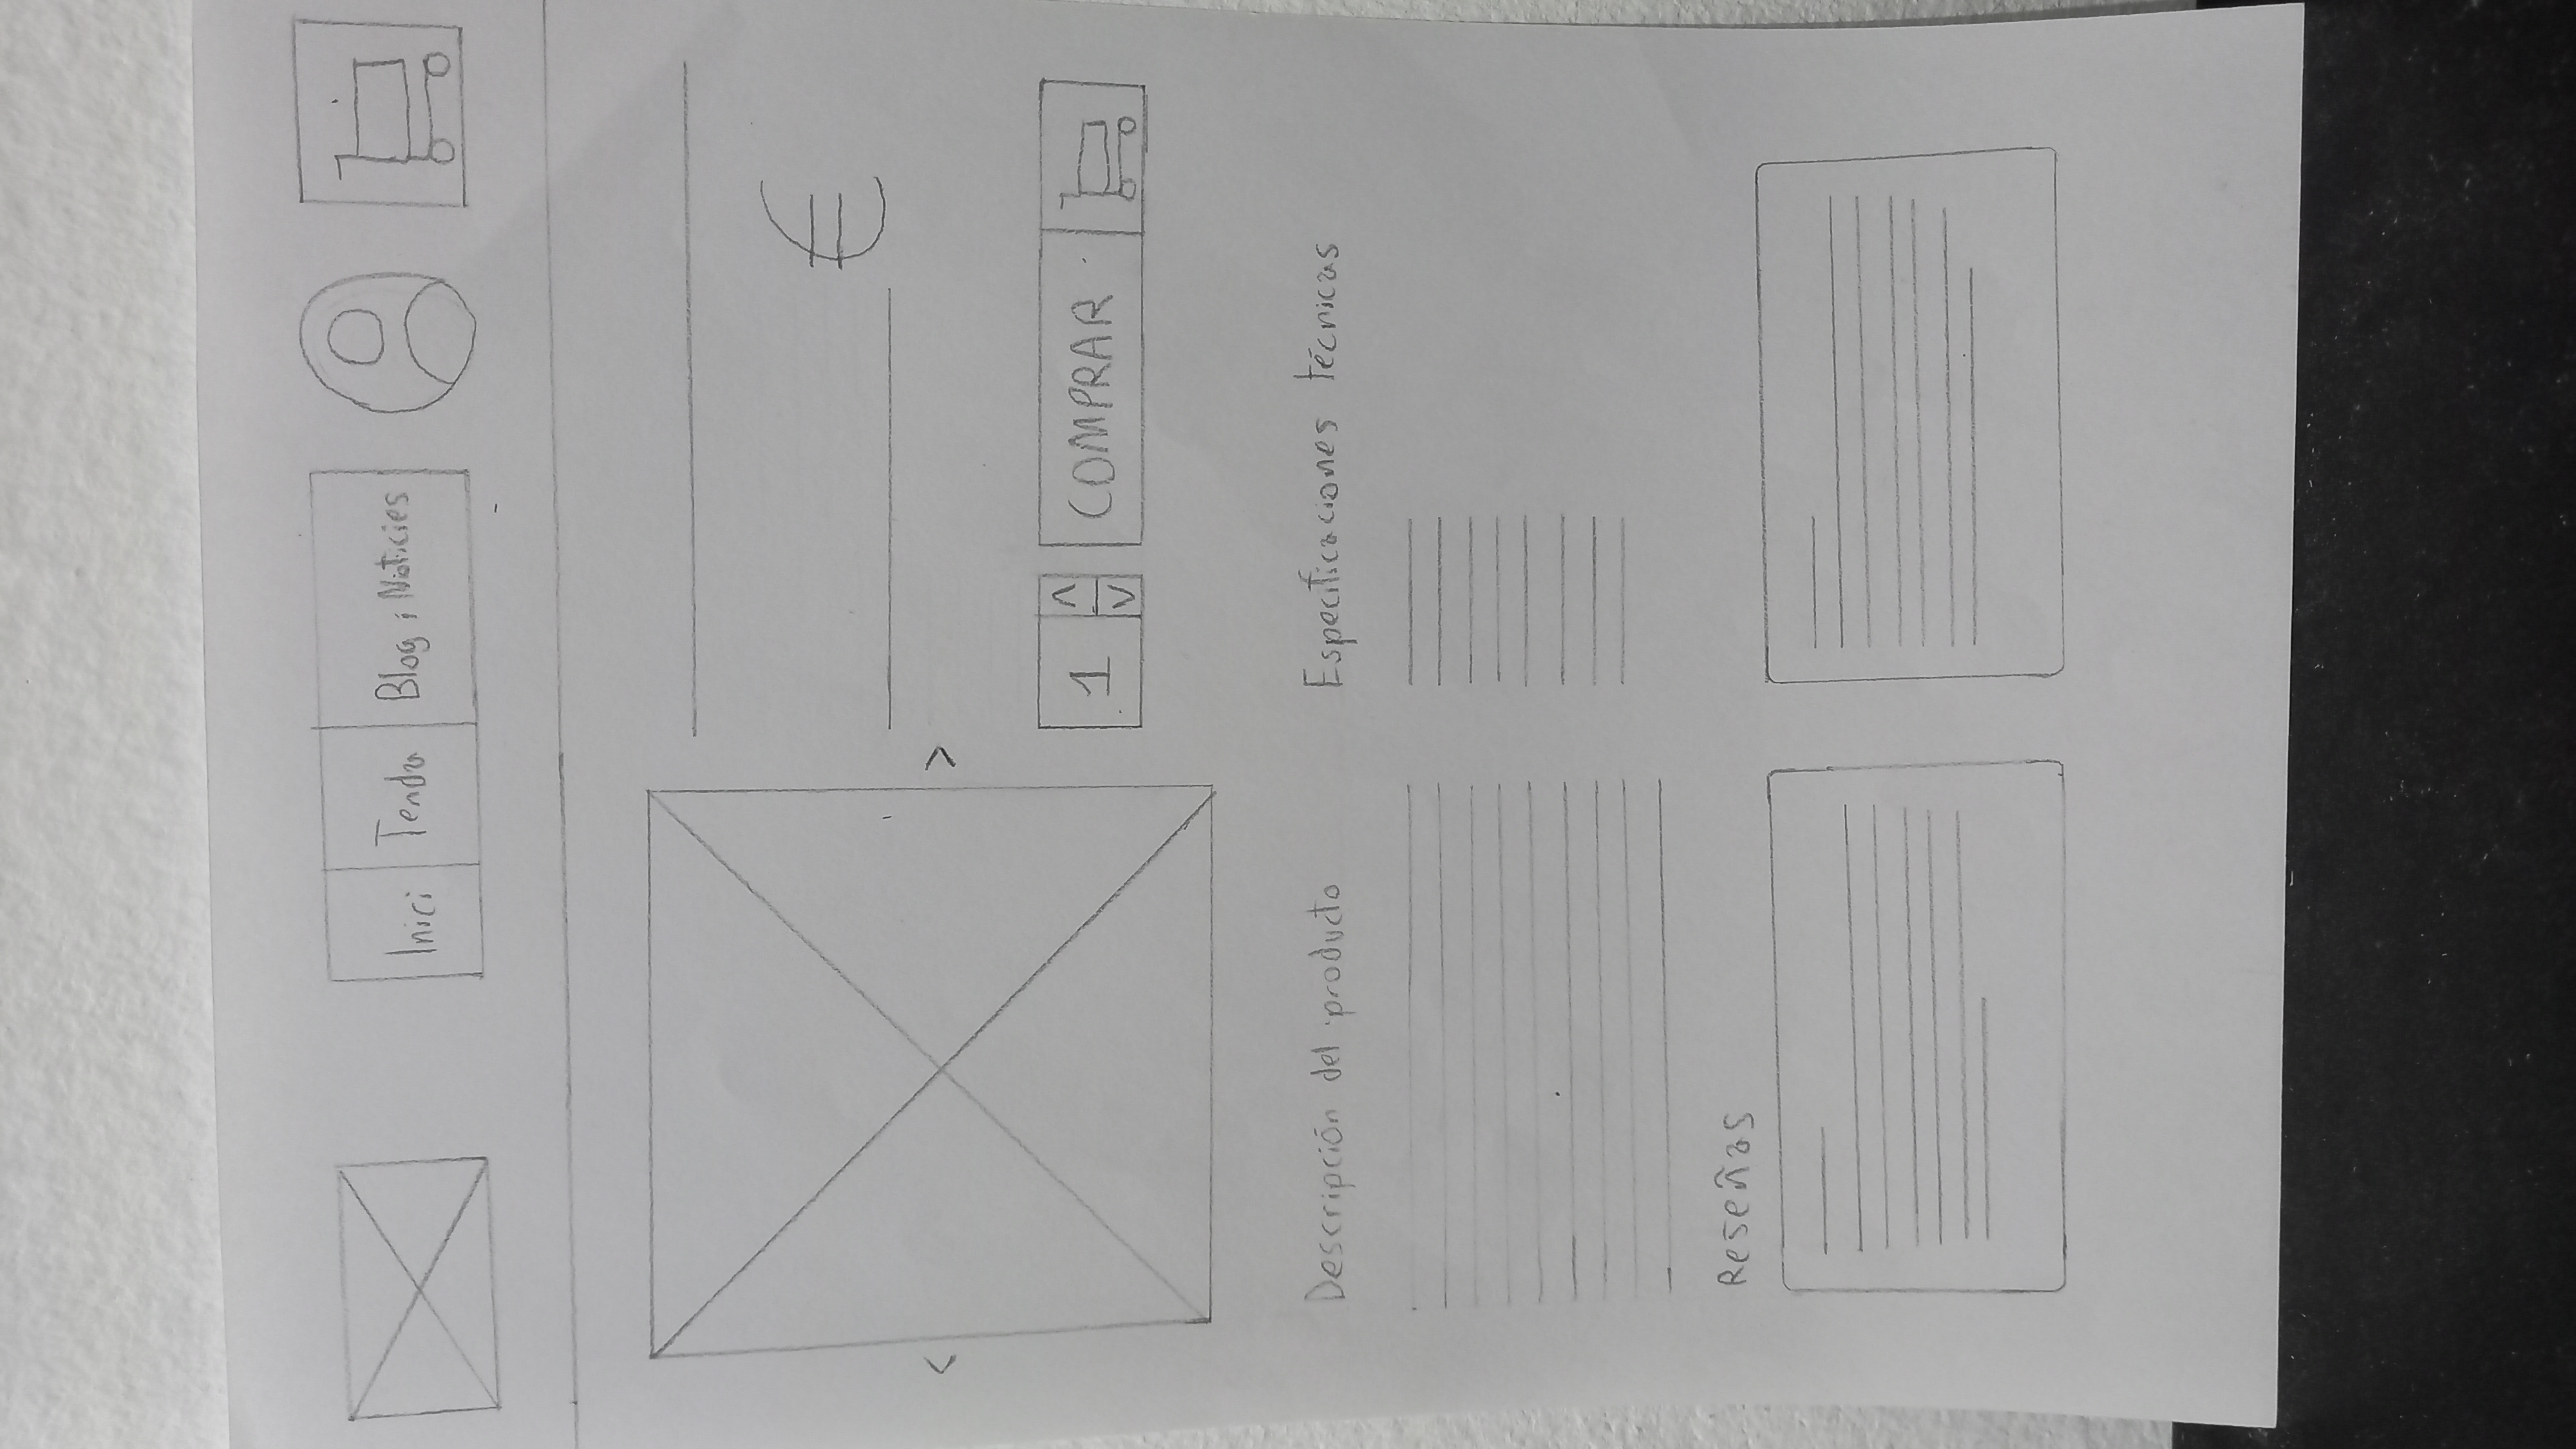 Inici Tenda Blog i Noticies
€
1 COMPRAR
Descripción del producto
Especificaciones técnicas
Reseñas